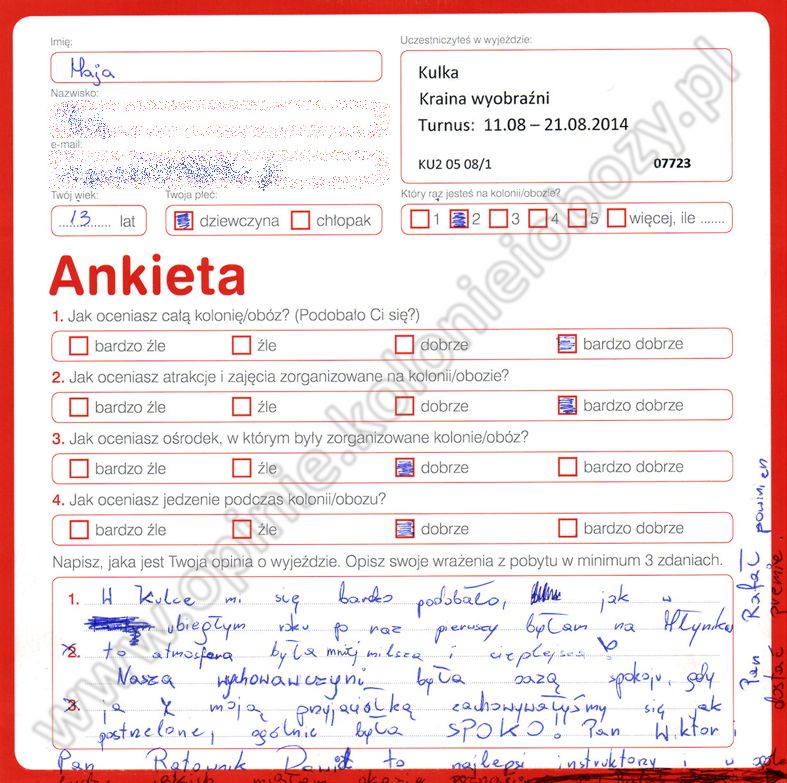 Imię:
Maja
Nazwisko:
e-mail:
Uczestniczyłeś w wyjeździe:
Kulka
Kraina wyobraźni
Turnus: 11.08 – 21.08.2014
KU2 05 08/1 07723
Twój wiek:
13 lat
Twoja płeć:
dziewczyna chłopak
Który raz jesteś na kolonii/obozie?
1 2 3 4 5 więcej, ile .......
Ankieta
1. Jak oceniasz całą kolonię/obóz? (Podobało Ci się?)
bardzo źle źle dobrze bardzo dobrze
2. Jak oceniasz atrakcje i zajęcia zorganizowane na kolonii/obozie?
bardzo źle źle dobrze bardzo dobrze
3. Jak oceniasz ośrodek, w którym były zorganizowane kolonie/obóz?
bardzo źle źle dobrze bardzo dobrze
4. Jak oceniasz jedzenie podczas kolonii/obozu?
bardzo źle źle dobrze bardzo dobrze
Napisz, jaka jest Twoja opinia o wyjeździe. Opisz swoje wrażenia z pobytu w minimum 3 zdaniach.
1. W Kulce mi się bardzo podobało, jak w
ubiegłym roku po raz pierwszy byłam na Młyniku
2. to atmosfera była mniej milsza i cieplejsza
Naszą wychowawczyni była oazą spokoju, gdy
3. ja z moją przyjaciółką zachowywałyśmy się jak
postrzelone, ogólnie było SPOKO! Pan Wiktor i
Pan Ratownik Dawid to najlepsi instruktorzy i
Pan Rafał powinien
dostać premie.
www.opinie.kolonieiobozy.pl